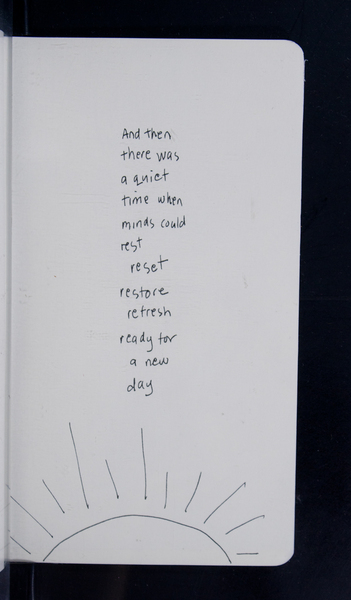 And then
there was
a quiet
time when
minds could
rest
reset
restore
refresh
ready for
a new
day